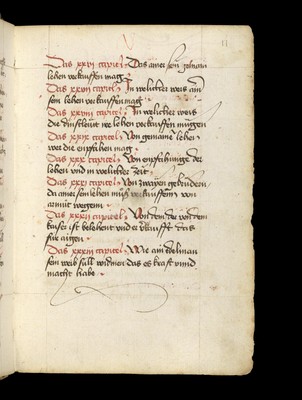 11
Das xxvj capitel Das ainer sein gemain
lehen verkauffen mag
Das xxvij capitel In welicher weis ain
sein lehen verkauffen mag
Das xxviij capitel In welicher weis
die lehen verkauffen mugen
Das xxix capitel Von gemaine lehen
wer die empfahen mag
Das xxx capitel Von empfahunge der
lehen vnd in welicher zeit
Das xxxj capitel Von zwayen gebrudern
da ainer sein lehen mus verkauffen von
armut wegen
Das xxxij capitel Von dem der von dem
kaiser ist belehent vnd er verkaufft das
fur aigen
Das xxxiij capitel Wie ain edelman
sein weib sull widmen das es krafft vnnd
macht habe